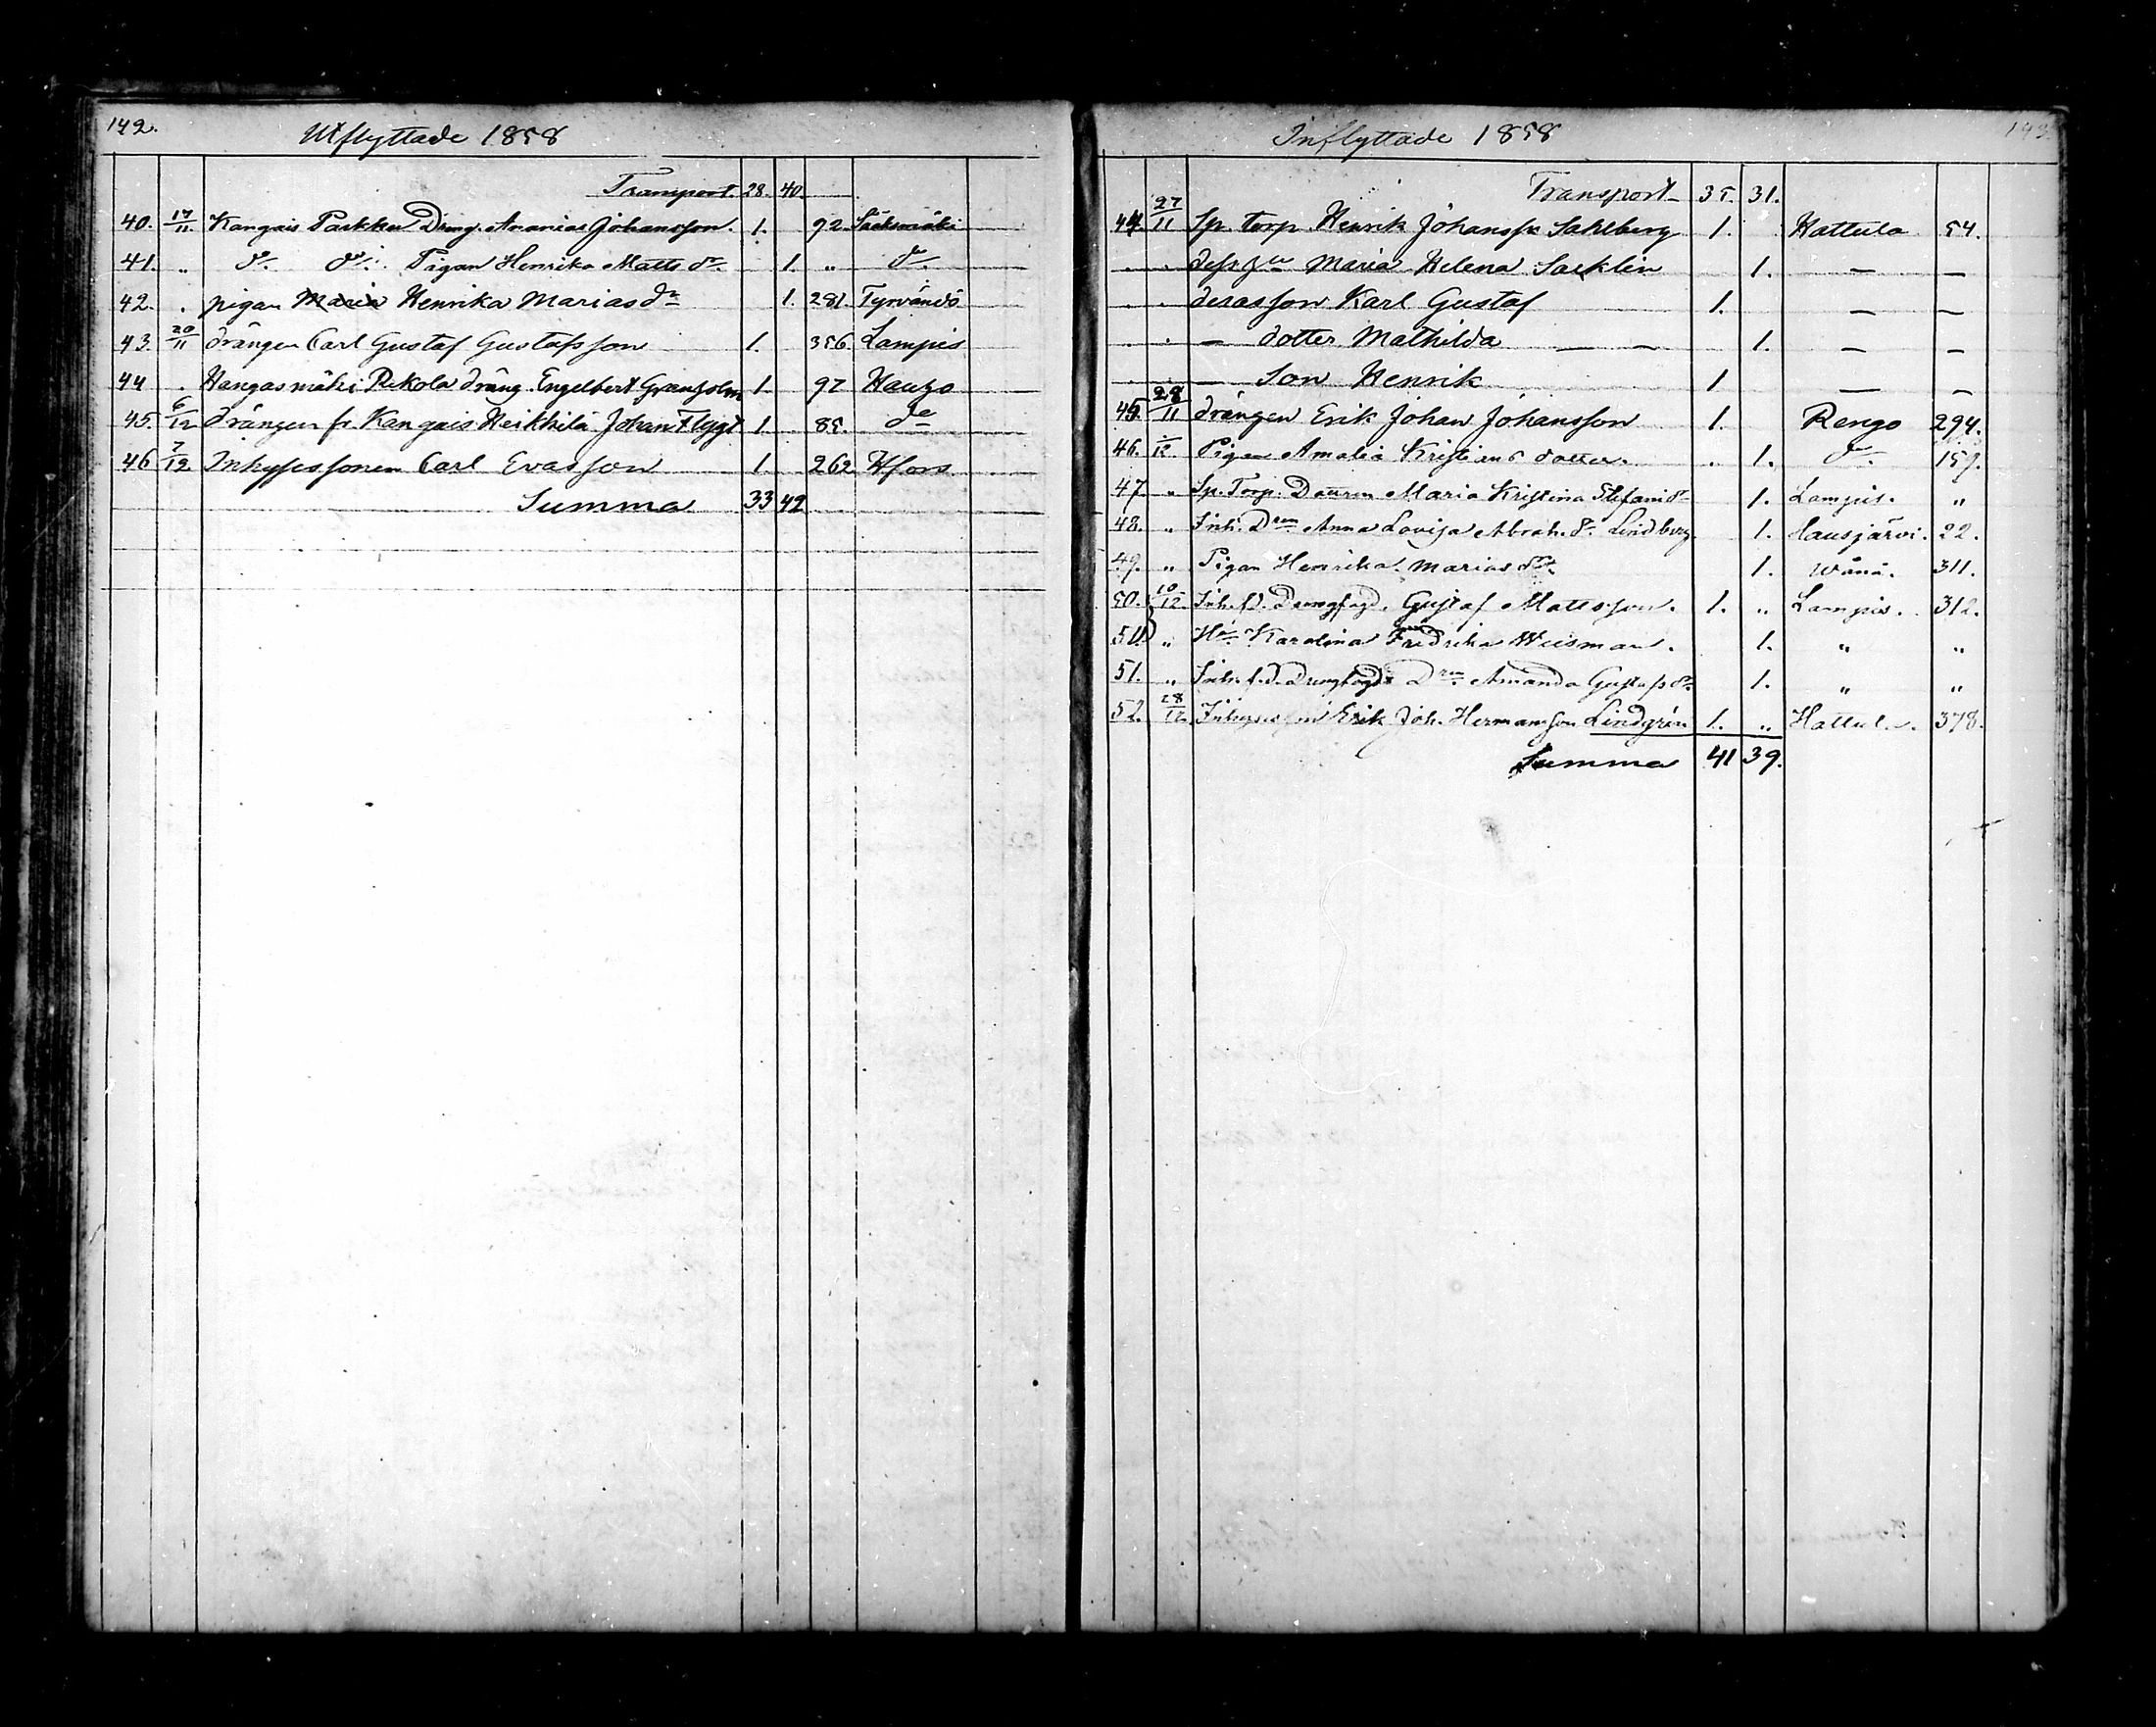 142.
Utflyttade 1858
Transport. 28. 40.
40. 17/11. Kangais Parkku Dräng. Ananias Johansson. 1. 92. Sääksmäki
41. " do. do. Pigan Henrika Matts dr. 1. " do.
42. . pigan Maria Henrika Marias dr 1. 281. Tyrvändö
43. 20/11 drängen Carl Gustaf Gustafsson 1. 356. Lampis
44 . Hangasmäki Pekola dräng. Engelbert Granholm 1. 97 Hauho
45. 6/12 drängen fr. Kangais Heikkilä Johan Flygt 1. 85. do
46 7/12. Inhysessonen Carl Evasson 1. 262 Hfors.
Summa 33 42
143
Inflyttade 1858
Transport 35. 31.
44. 27/11 Sp. torp. Henrik Johanss. Sahlberg 1. Hattula 54.
dess hu Maria Helena Saeklin 1. — —
deras son Karl Gustaf 1. — —
— dotter Mathilda — — 1. — —
— Son Henrik 1 — —
45. 28/11 drängen Erik Johan Johansson 1. Rengo 294.
46. /12 Pigan Amalia Kristians dotter. " 1. do. 159.
47. " Sp. Torp. Dottren Maria Kristina Stefans dr 1. Lampis. "
48. " Inh. Dren Anna Lovisa Abrah. dr. Lindberg. 1. Hausjärvi. 22.
49. " Pigan Henrika Marias dr. 1. Wånå. 311.
50. 10/12. Inh. f.d. Drengfogd. Gustaf Mattsson. 1. " Lampis. 312.
51. " Hu. Karolina Fredrika Wiisman. 1. " "
51. " Inh. f.d. Drengfogds Dren. Amanda Gustafs dr. 1. " "
52. 28/12. Inhyses son Erik Joh. Hermansson Lindgrén 1. " Hattul.. 378.
Summa 41 39.